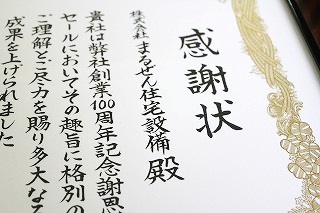 感謝状
株式会社 まるぜん住宅設備 殿
貴社は弊社創業100周年記念謝恩
セールにおいてその趣旨に格別の
ご理解とご尽力を賜り多大なる
成果を上げられました